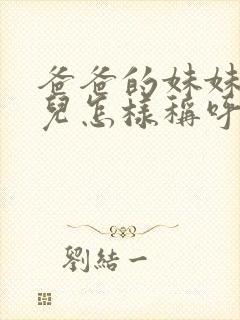 爸爸的妹妹
兒怎樣稱呼
劉結一